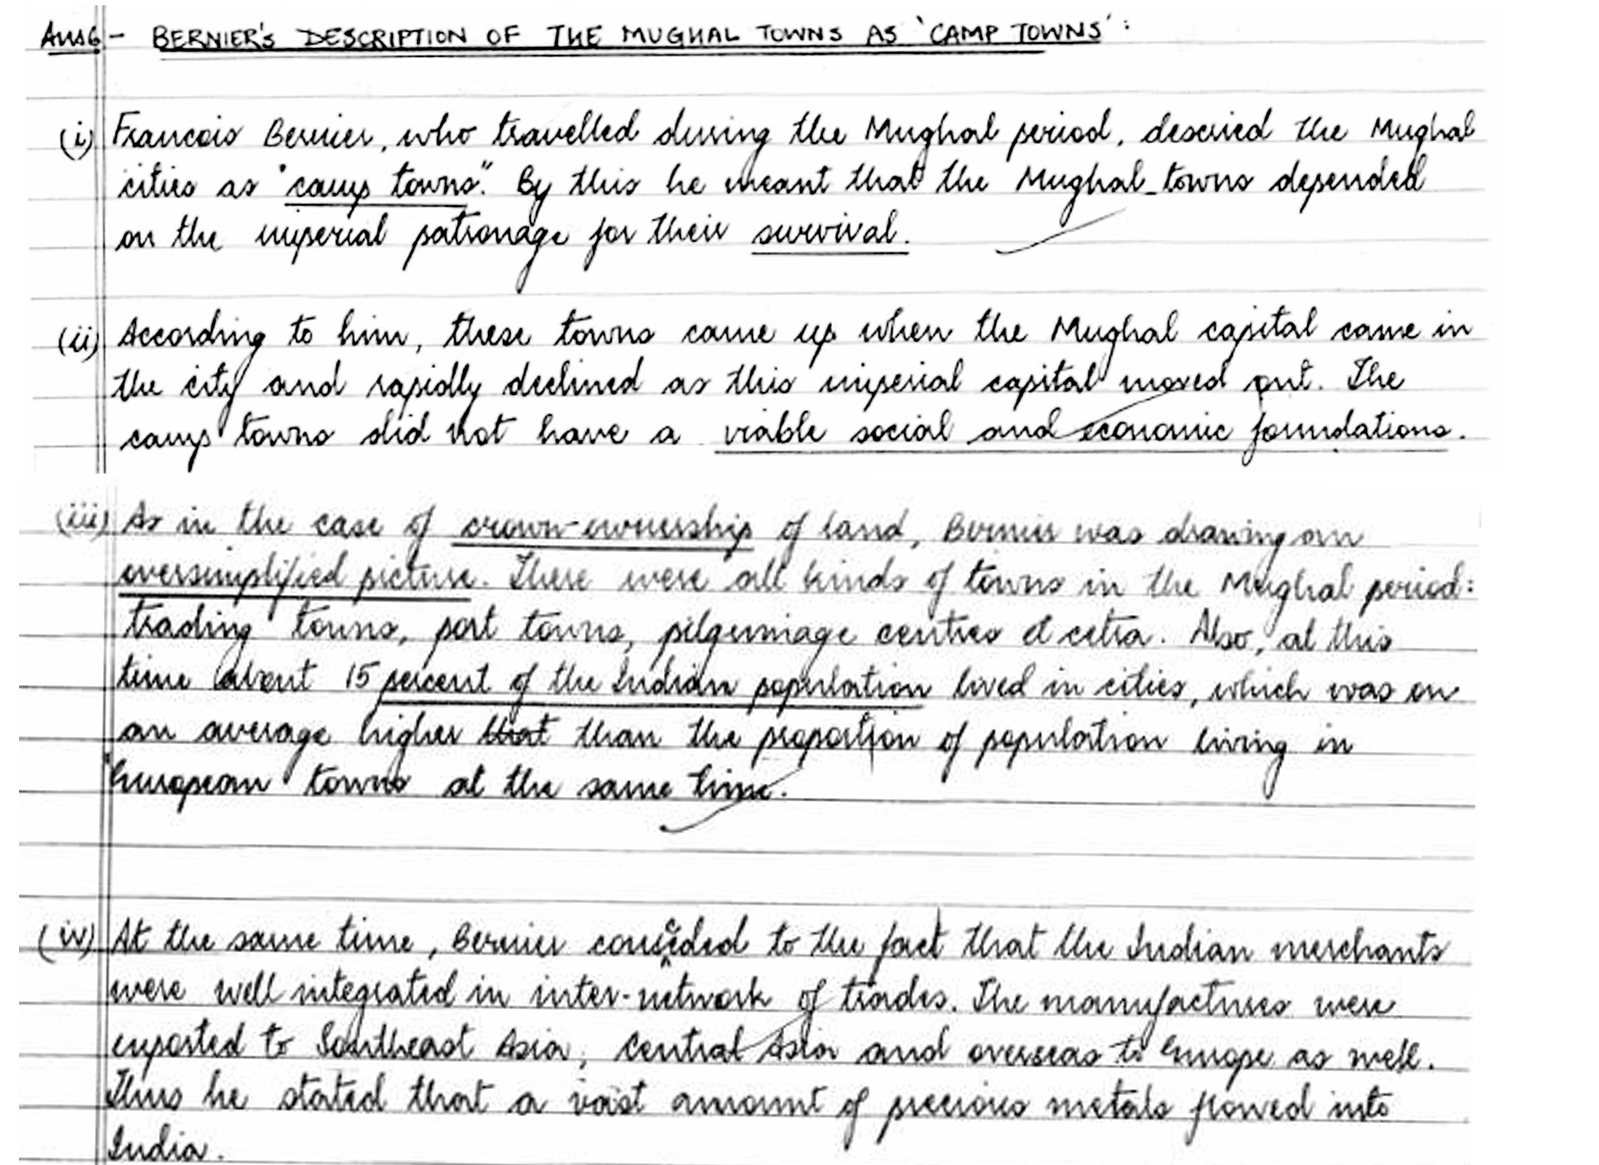 Ans6- BERNIER'S DESCRIPTION OF THE MUGHAL TOWNS AS 'CAMP TOWNS':
(i) Francois Bernier, who travelled during the Mughal period, descried the Mughal
cities as "camp towns". By this he meant that the Mughal towns depended
on the imperial patronage for their survival.
(ii) According to him, these towns came up when the Mughal capital came in
the city and rapidly declined as this imperial capital moved out. The
camps towns did not have a viable social and economic foundations.
(iii) As in the case of crown-ownership of land, Bernier was drawing an
oversimplified picture. There were all kinds of towns in the Mughal period:
trading towns, port towns, pilgrimage centres et cetra. Also, at this
time about 15 percent of the Indian population lived in cities, which was on
an average higher that than the proportion of population living in
European towns at the same time.
(iv) At the same time, Bernier conceded to the fact that the Indian merchants
were well integrated in inter-network of trades. The manufactures were
exported to Southeast Asia, Central Asia and overseas to Europe as well.
Thus he stated that a vast amount of precious metals flowed into
India.